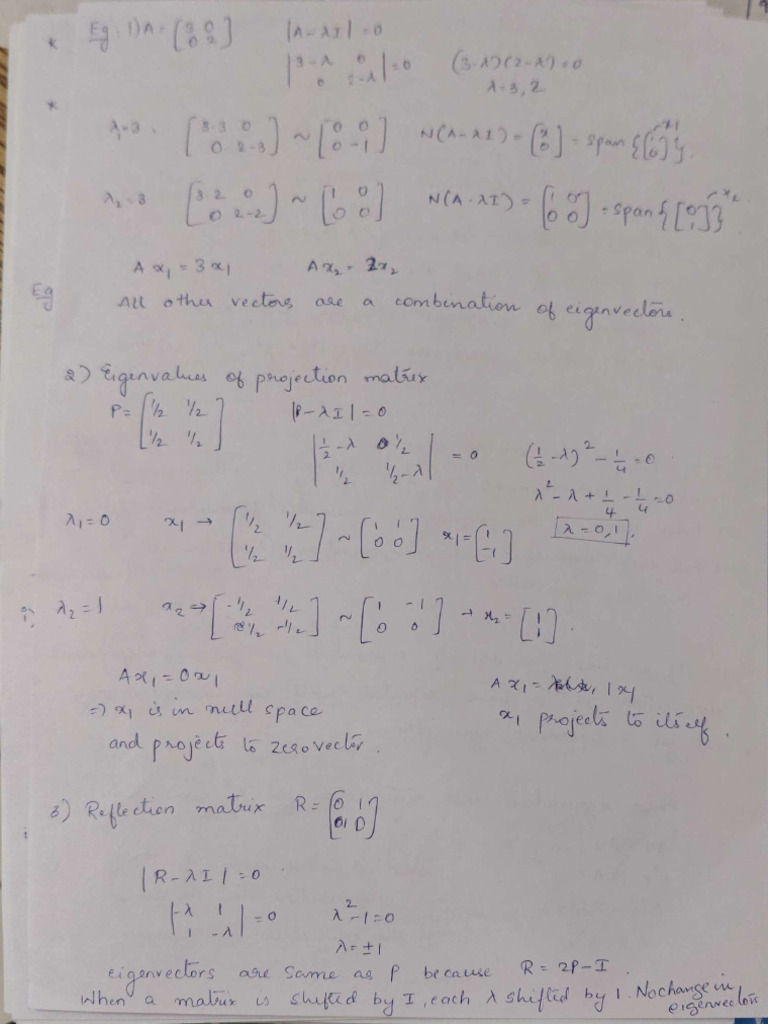 Eg: 1) A = [3 0; 0 2] |A - λI| = 0
|3-λ 0; 0 2-λ| = 0 (3-λ)(2-λ) = 0
λ = 3, 2
λ₁=3. [3-3 0; 0 2-3] ~ [0 0; 0 -1] N(A-λI) = [x; 0] = span{[1; 0]}. x₁
λ₂=3 [3-2 0; 0 2-2] ~ [1 0; 0 0] N(A-λI) = [1 0; 0 0] = span{[0; 1]} x₂
A x₁ = 3x₁ A x₂ = 2x₂
Eg All other vectors are a combination of eigenvectors.
2) Eigenvalues of projection matrix
P = [1/2 1/2; 1/2 1/2] |P - λI| = 0
|1/2-λ 1/2; 1/2 1/2-λ| = 0 (1/2 - λ)² - 1/4 = 0
λ² - λ + 1/4 - 1/4 = 0
λ₁=0 x₁ → [1/2 1/2; 1/2 1/2] ~ [1 1; 0 0] x₁ = [1; -1] λ = 0, 1.
λ₂=1 x₂ → [-1/2 1/2; 1/2 -1/2] ~ [1 -1; 0 0] → x₂ = [1; 1].
A x₁ = 0x₁ A x₁ = 1x₁
⇒ x₁ is in null space x₁ projects to itself.
and projects to zero vector.
3) Reflection matrix R = [0 1; 1 0]
|R - λI| = 0
|-λ 1; 1 -λ| = 0 λ² - 1 = 0
λ = ±1
eigenvectors are same as P because R = 2P - I.
When a matrix is shifted by I, each λ shifted by 1. No change in
eigenvectors